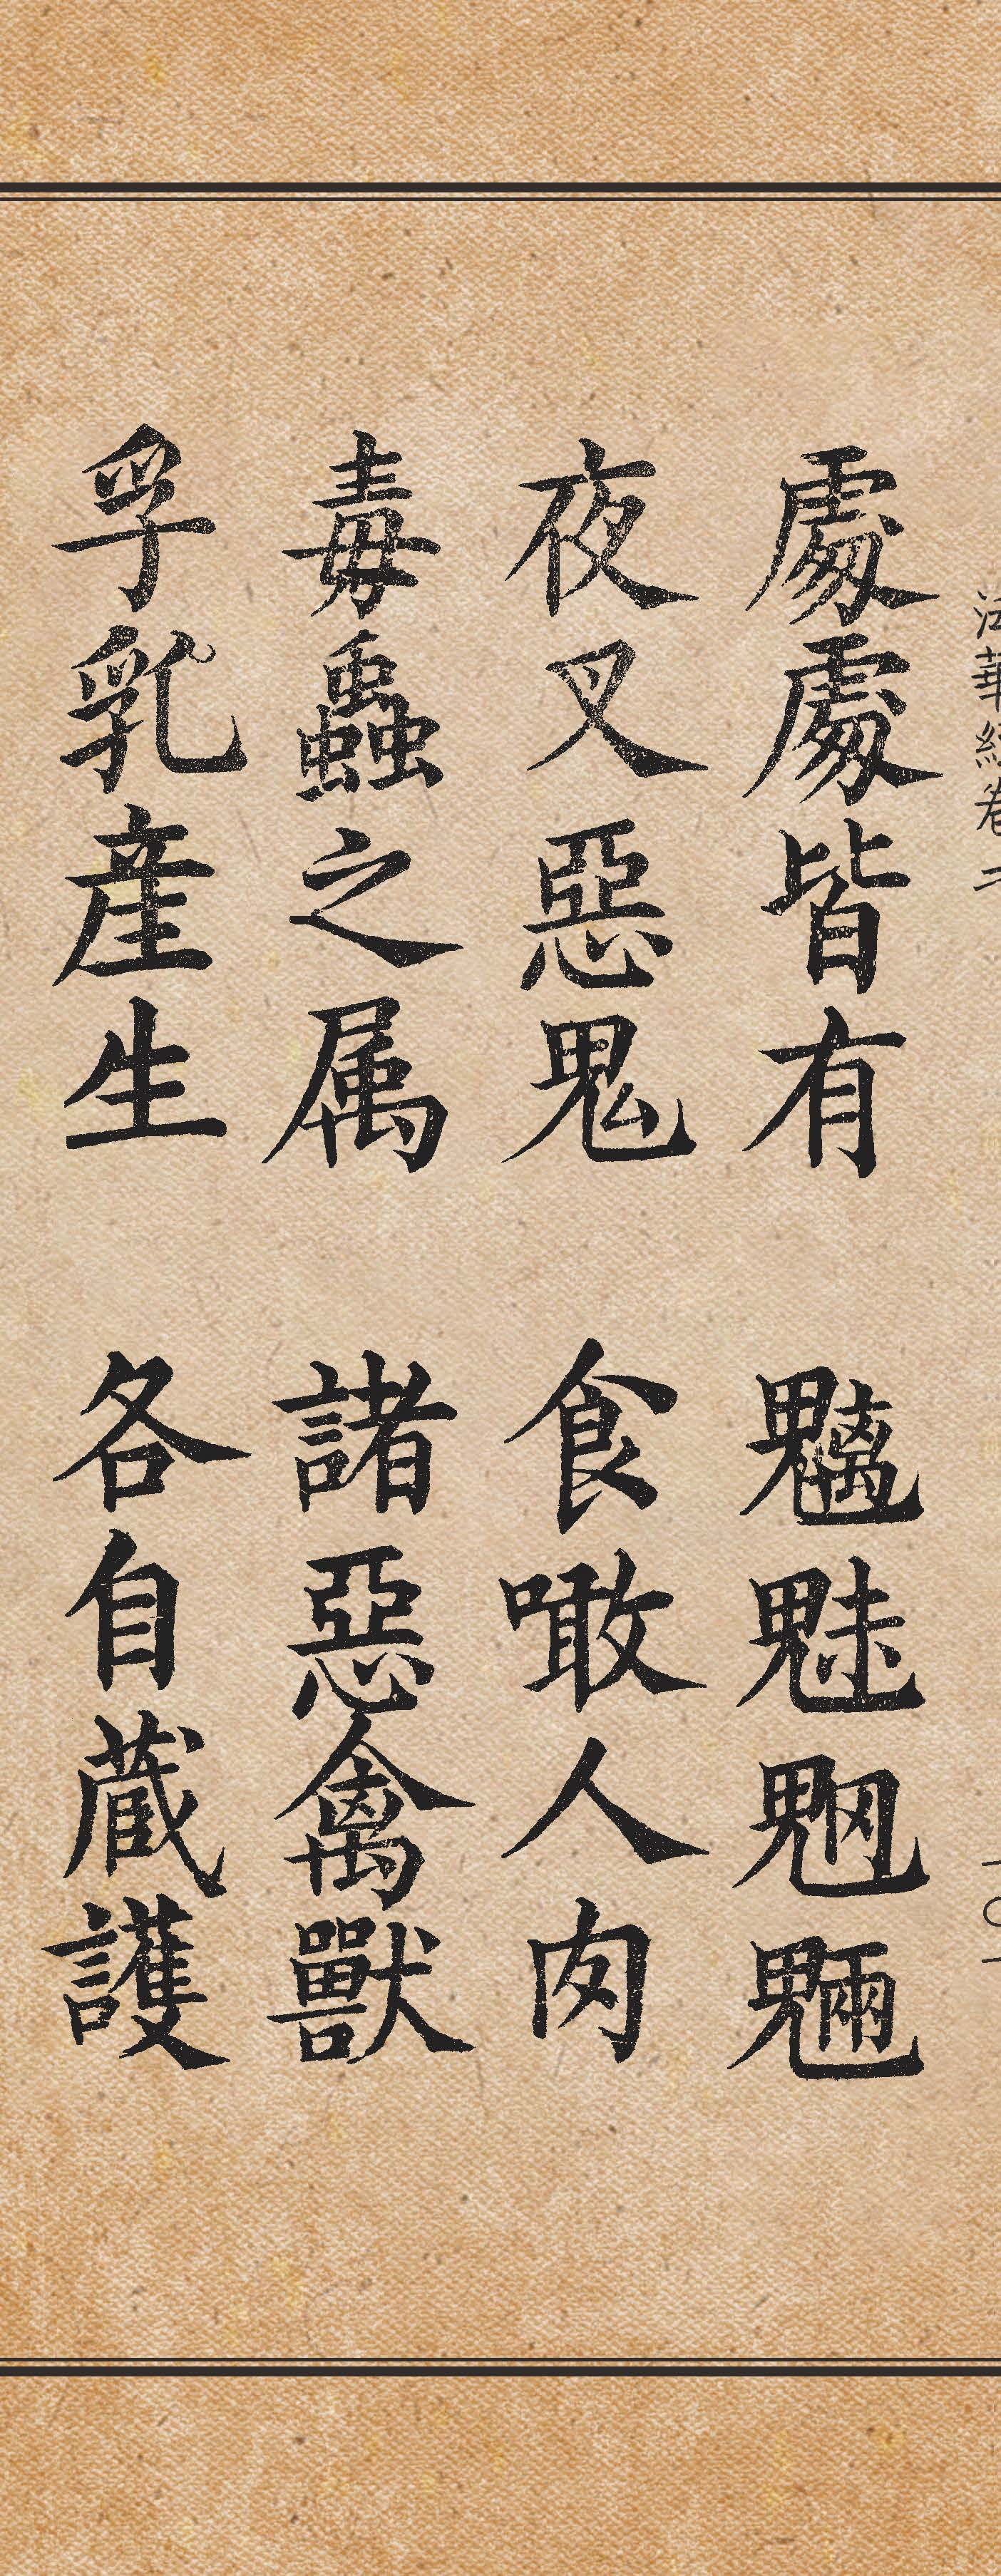 法華經卷二 一〇一
處處皆有 魑魅魍魎
夜叉惡鬼 食噉人肉
毒蟲之属 諸惡禽獸
孚乳産生 各自蔵護